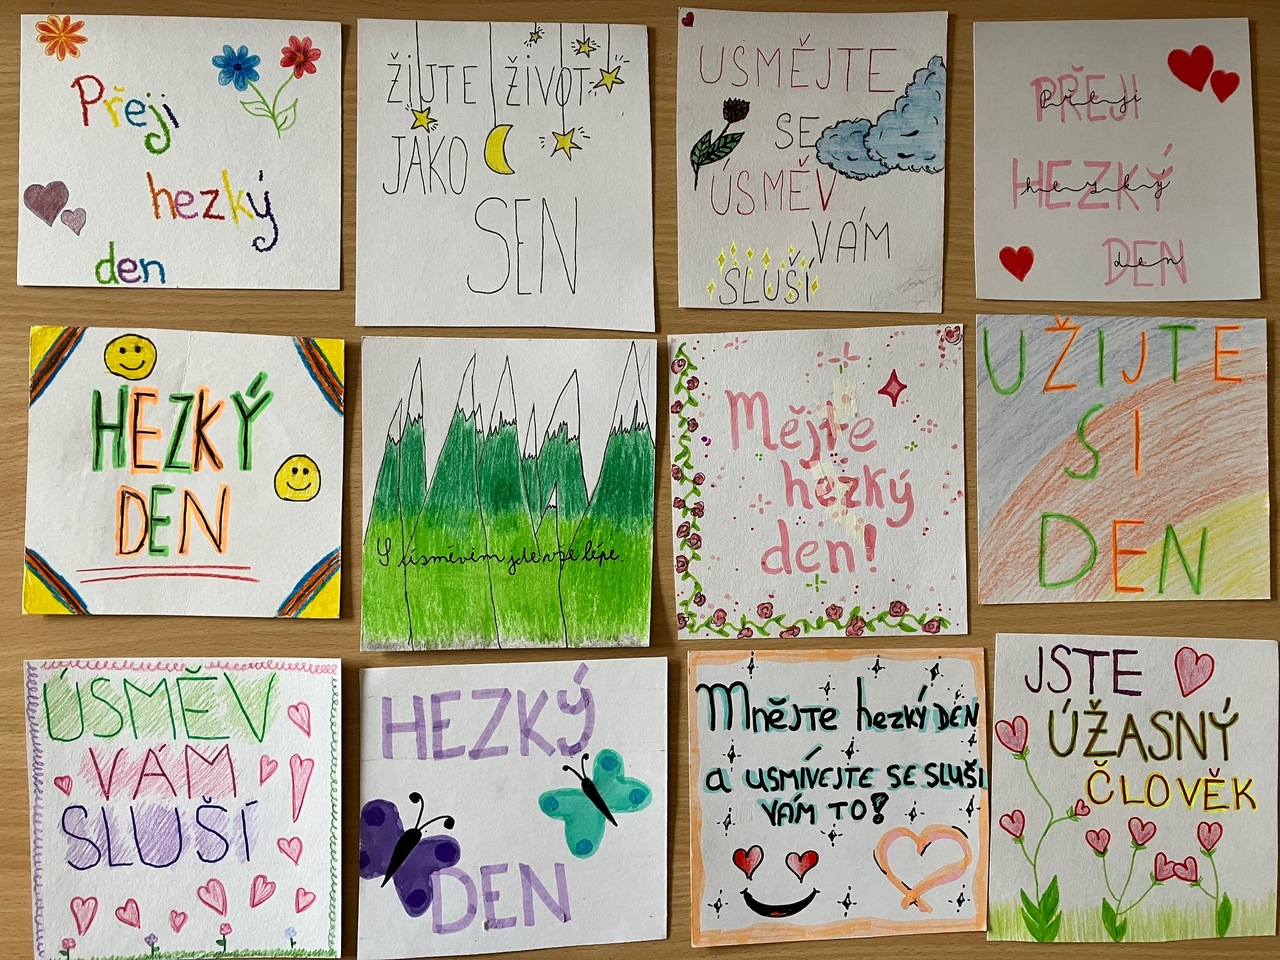 Přeji
hezký
den
ŽIJTE ŽIVOT
JAKO
SEN
USMĚJTE
SE
ÚSMĚV
VÁM
SLUŠÍ
PŘEJI
Přeji
HEZKÝ
hezký
DEN
den
HEZKÝ
DEN
S úsměvem jde vše lépe.
Mějte
hezký
den!
UŽIJTE
SI
DEN
ÚSMĚV
VÁM
SLUŠÍ
HEZKÝ
DEN
MnĚJTE hezKÝ DEN
a USMÍVEJTE SE SLUŠÍ
VÁM TO!
JSTE
ÚŽASNÝ
ČLOVĚK